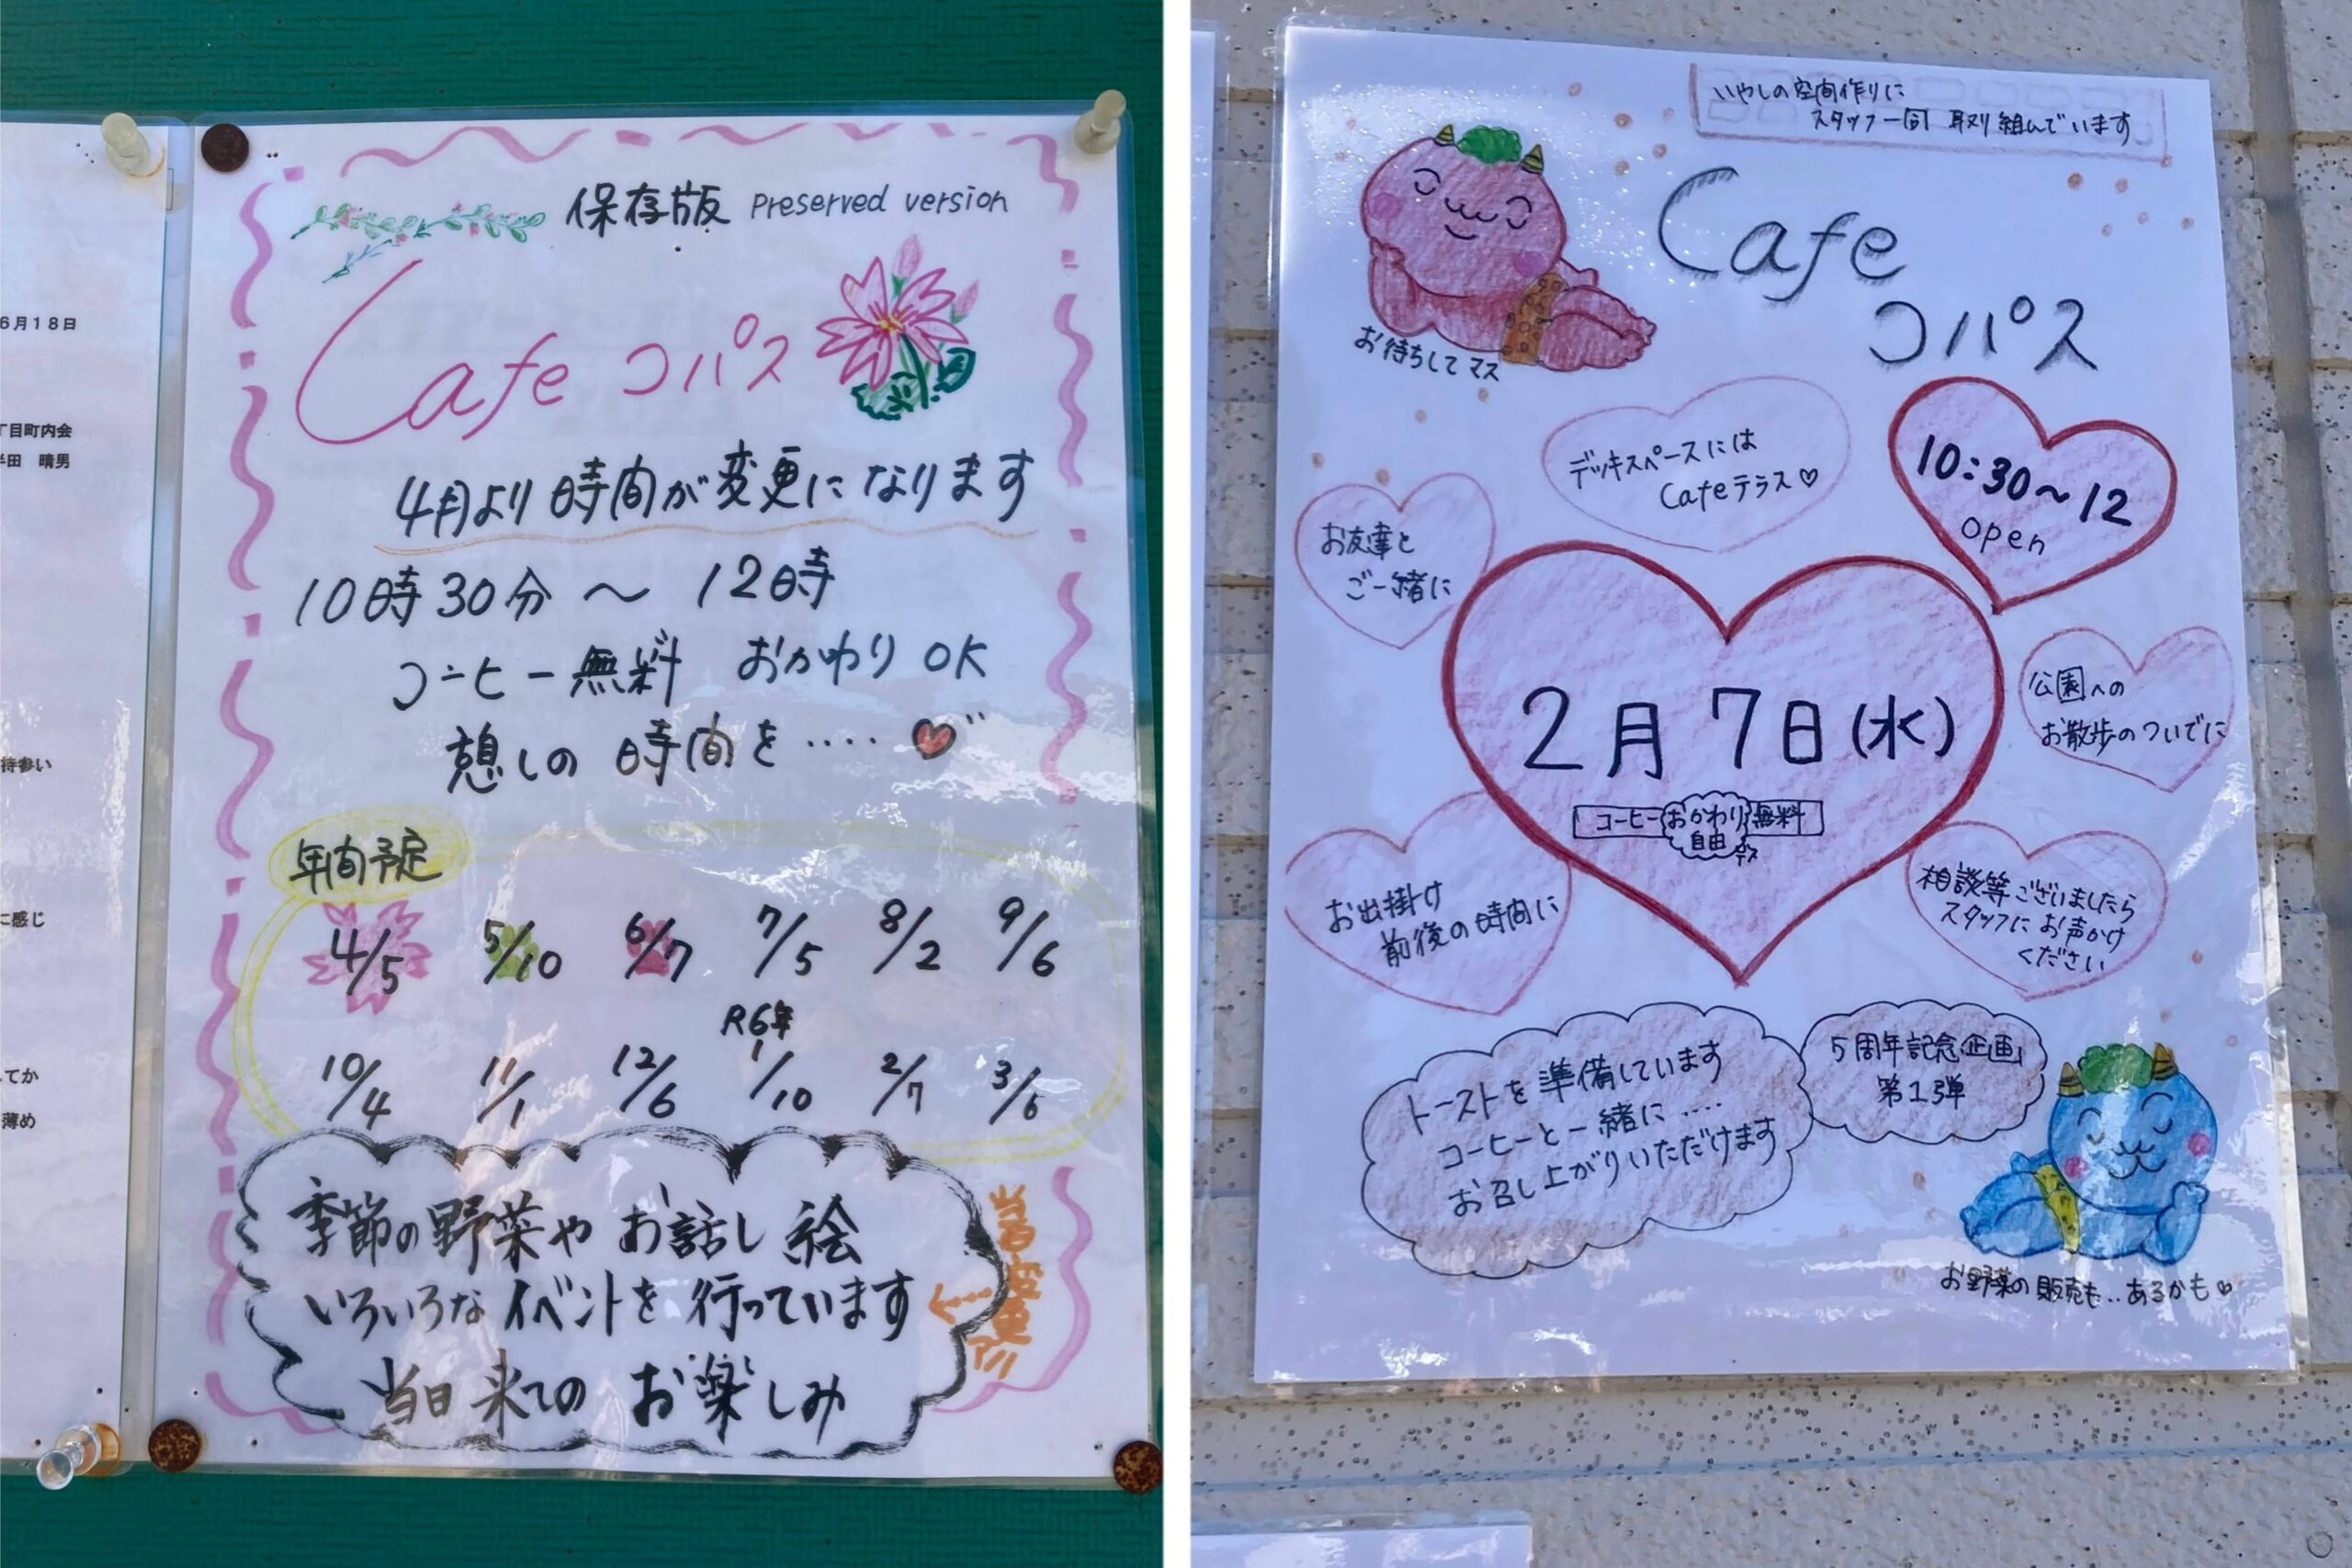 6月18日
丁目町内会
半田 晴男
持参い
に感じ
てか
薄め
保存版 preserved version
Cafe コパス
4月より時間が変更になります
10時30分 〜 12時
コーヒー無料 おかわり OK
憩しの 時間を‥‥
年間予定
4/5 5/10 6/7 7/5 8/2 9/6
R6年
10/4 11/1 12/6 1/10 2/7 3/6
季節の野菜や お話し 絵
いろいろな イベントを 行っています
当日 来ての お楽しみ
いやしの空間作りに
スタッフ一同 取り組んでいます
Cafe
コパス
お待ちしてマス
デッキスペースには
Cafeテラス♡
10:30〜12
open
お友達と
ご一緒に
2月7日(水)
コーヒーおかわり無料
自由
デス
公園への
お散歩のついでに
お出掛け
前後の時間に
相談等ございましたら
スタッフにお声かけ
ください
トーストを準備しています
コーヒーと一緒に‥‥
お召し上がりいただけます
5周年記念企画
第1弾
お野菜の販売も‥あるかも♡